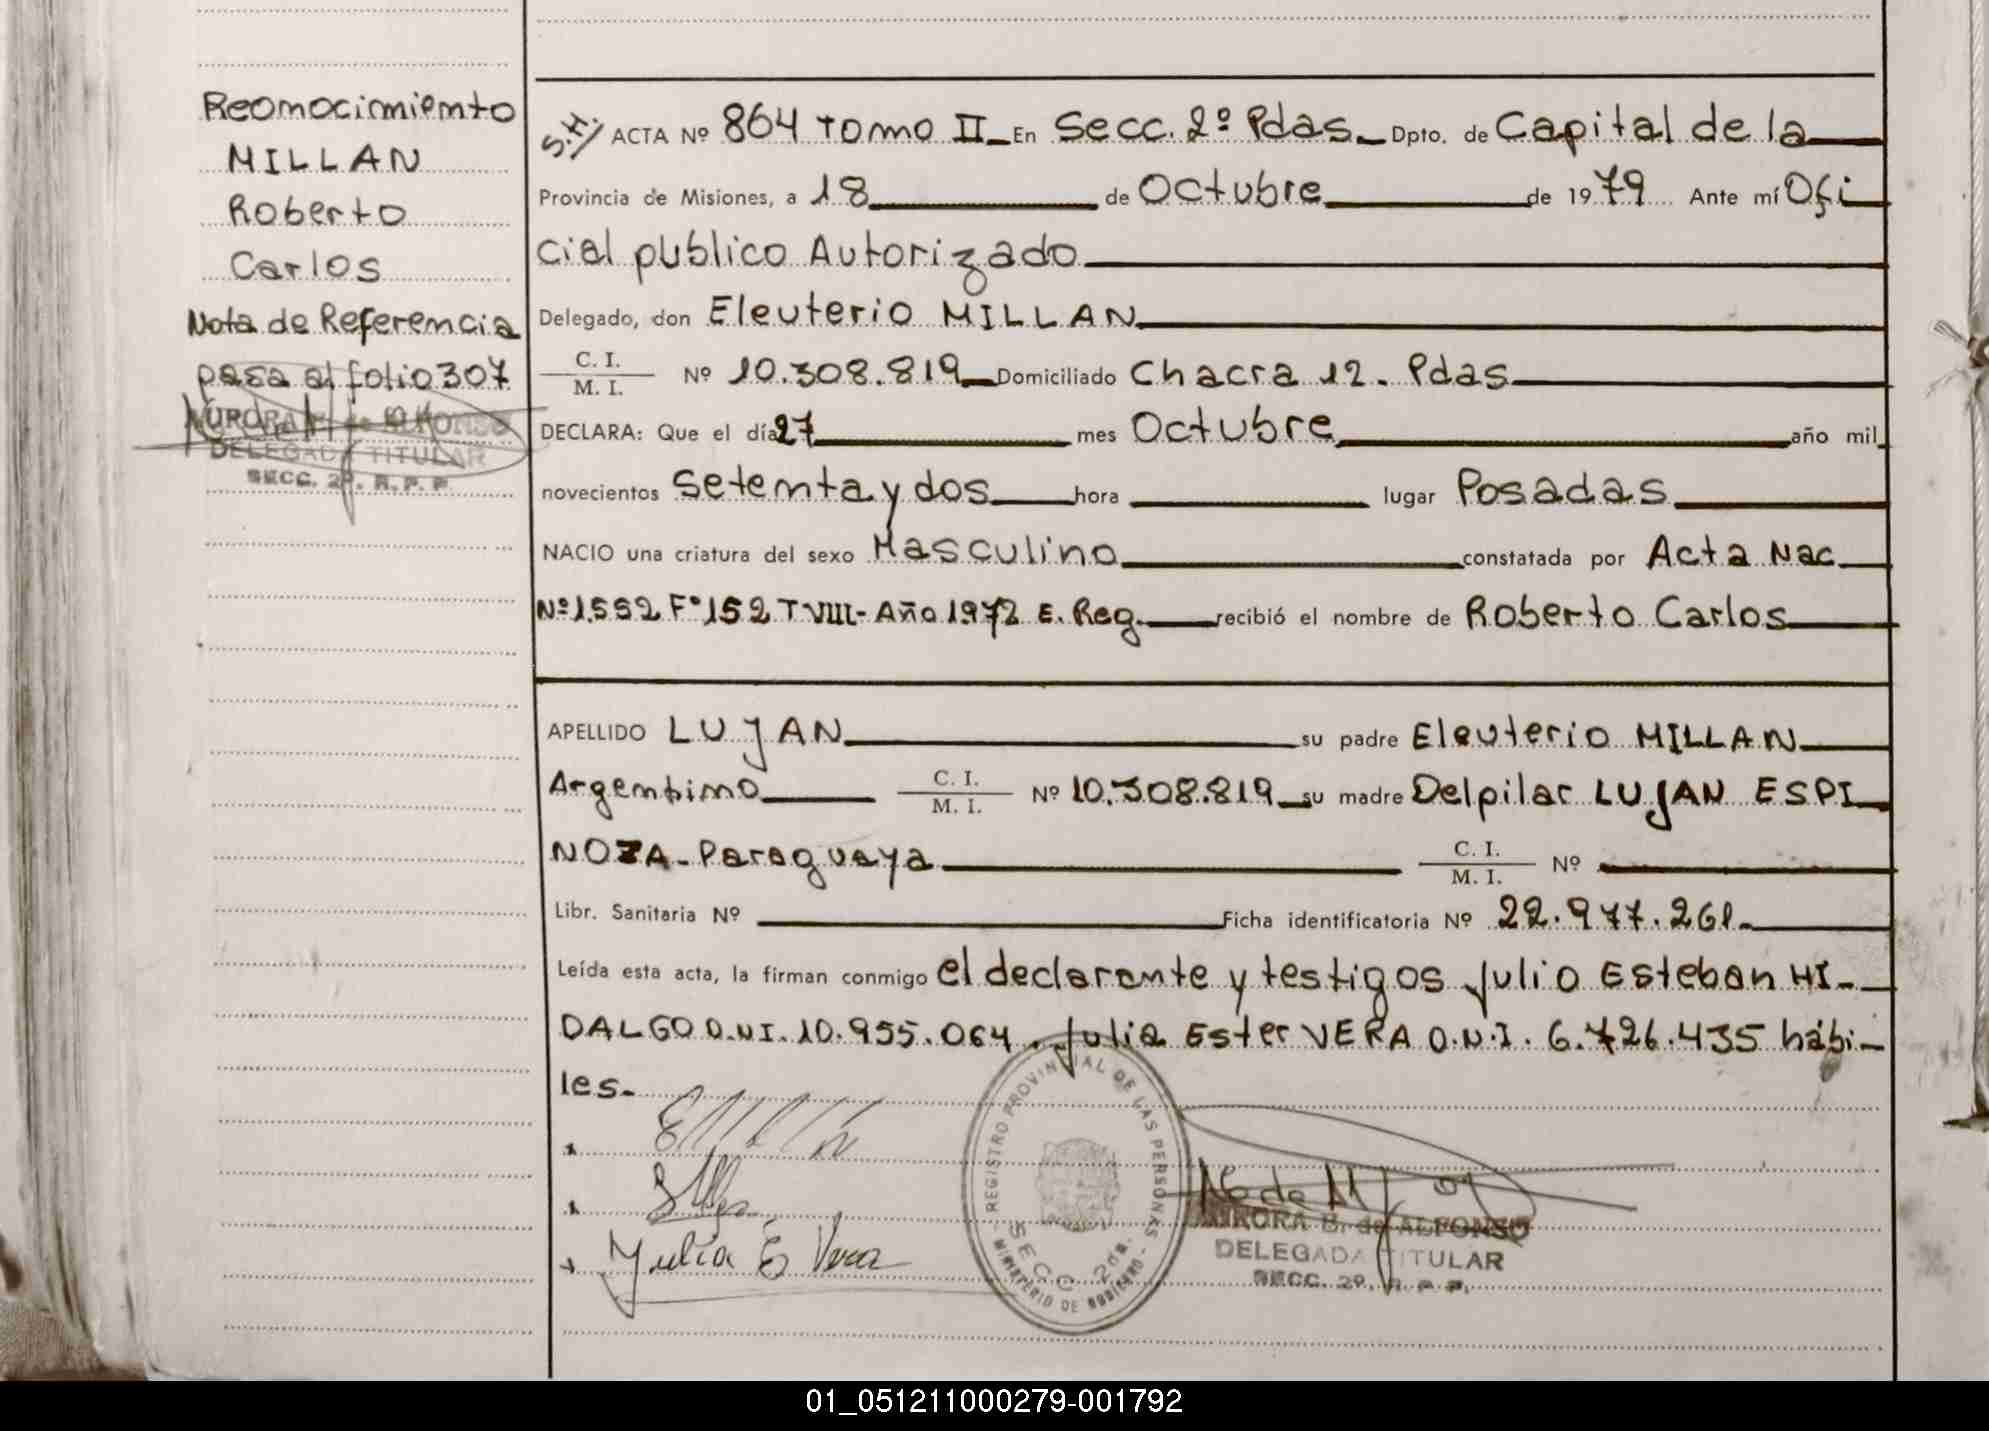 Reomocimiento
MILLAN
Roberto
Carlos
Nota de Referencia
pasa al folio 307
AURORA B. de ALFONSO
DELEGADA TITULAR
SECC. 2º. R. P. P.
S.H. ACTA Nº 864 Tomo II En Secc. 2º Pdas. Dpto. de Capital de la
Provincia de Misiones, a 18 de Octubre de 1979 Ante mí Ofi
cial publico Autorizado
Delegado, don Eleuterio MILLAN
C. I.
M. I. Nº 10.308.819 Domiciliado Chacra 12. Pdas
DECLARA: Que el día 27 mes Octubre año mil
novecientos Setenta y dos hora lugar Posadas
NACIO una criatura del sexo Masculino constatada por Acta Nac
Nº 1.552 Fº 152 T VIII- Año 1972 E. Reg. recibió el nombre de Roberto Carlos
APELLIDO LUJAN su padre Eleuterio MILLAN
Argentino C. I.
M. I. Nº 10.308.819 su madre Delpilar LUJAN ESPI
NOZA- Paraguaya C. I.
M. I. Nº
Libr. Sanitaria Nº Ficha identificatoria Nº 22.977.261-
Leída esta acta, la firman conmigo el declarante y testigos Julio Esteban HI-
DALGO D.N.I. 10.955.064. Julia Ester VERA D.N.I. 6.726.435 hábi-
les-
Julia E Vera
REGISTRO PROVINCIAL DE LAS PERSONAS
SECC. 2da.
MINISTERIO DE GOBIERNO
AURORA B. de ALFONSO
DELEGADA TITULAR
SECC. 2º. R. P. P.
01_051211000279-001792